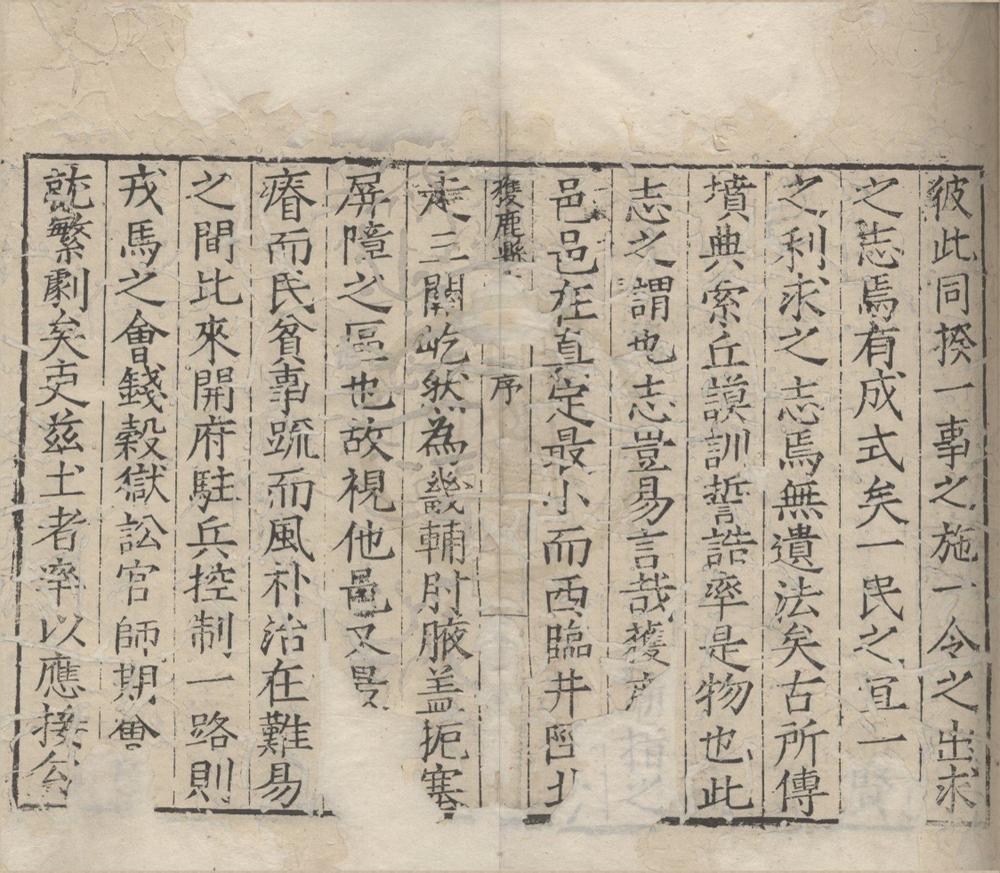 彼此同揆一事之施一令之出求
之志焉有成式矣一民之宜一
之利求之志焉無遺法矣古所傳
墳典索丘謨訓誓誥率是物也此
志之謂也志豈易言哉獲
邑邑在真定最小而西臨井陘北
獲鹿縣 序
走三關屹然為畿輔肘腋盖扼塞
屏障之區也故視他邑又最
瘠而民貧事䟽而風朴治在難易
之間比來開府駐兵控制一路則
戎馬之會錢榖獄訟官師期會
就繁劇矣吏兹土者率以應接